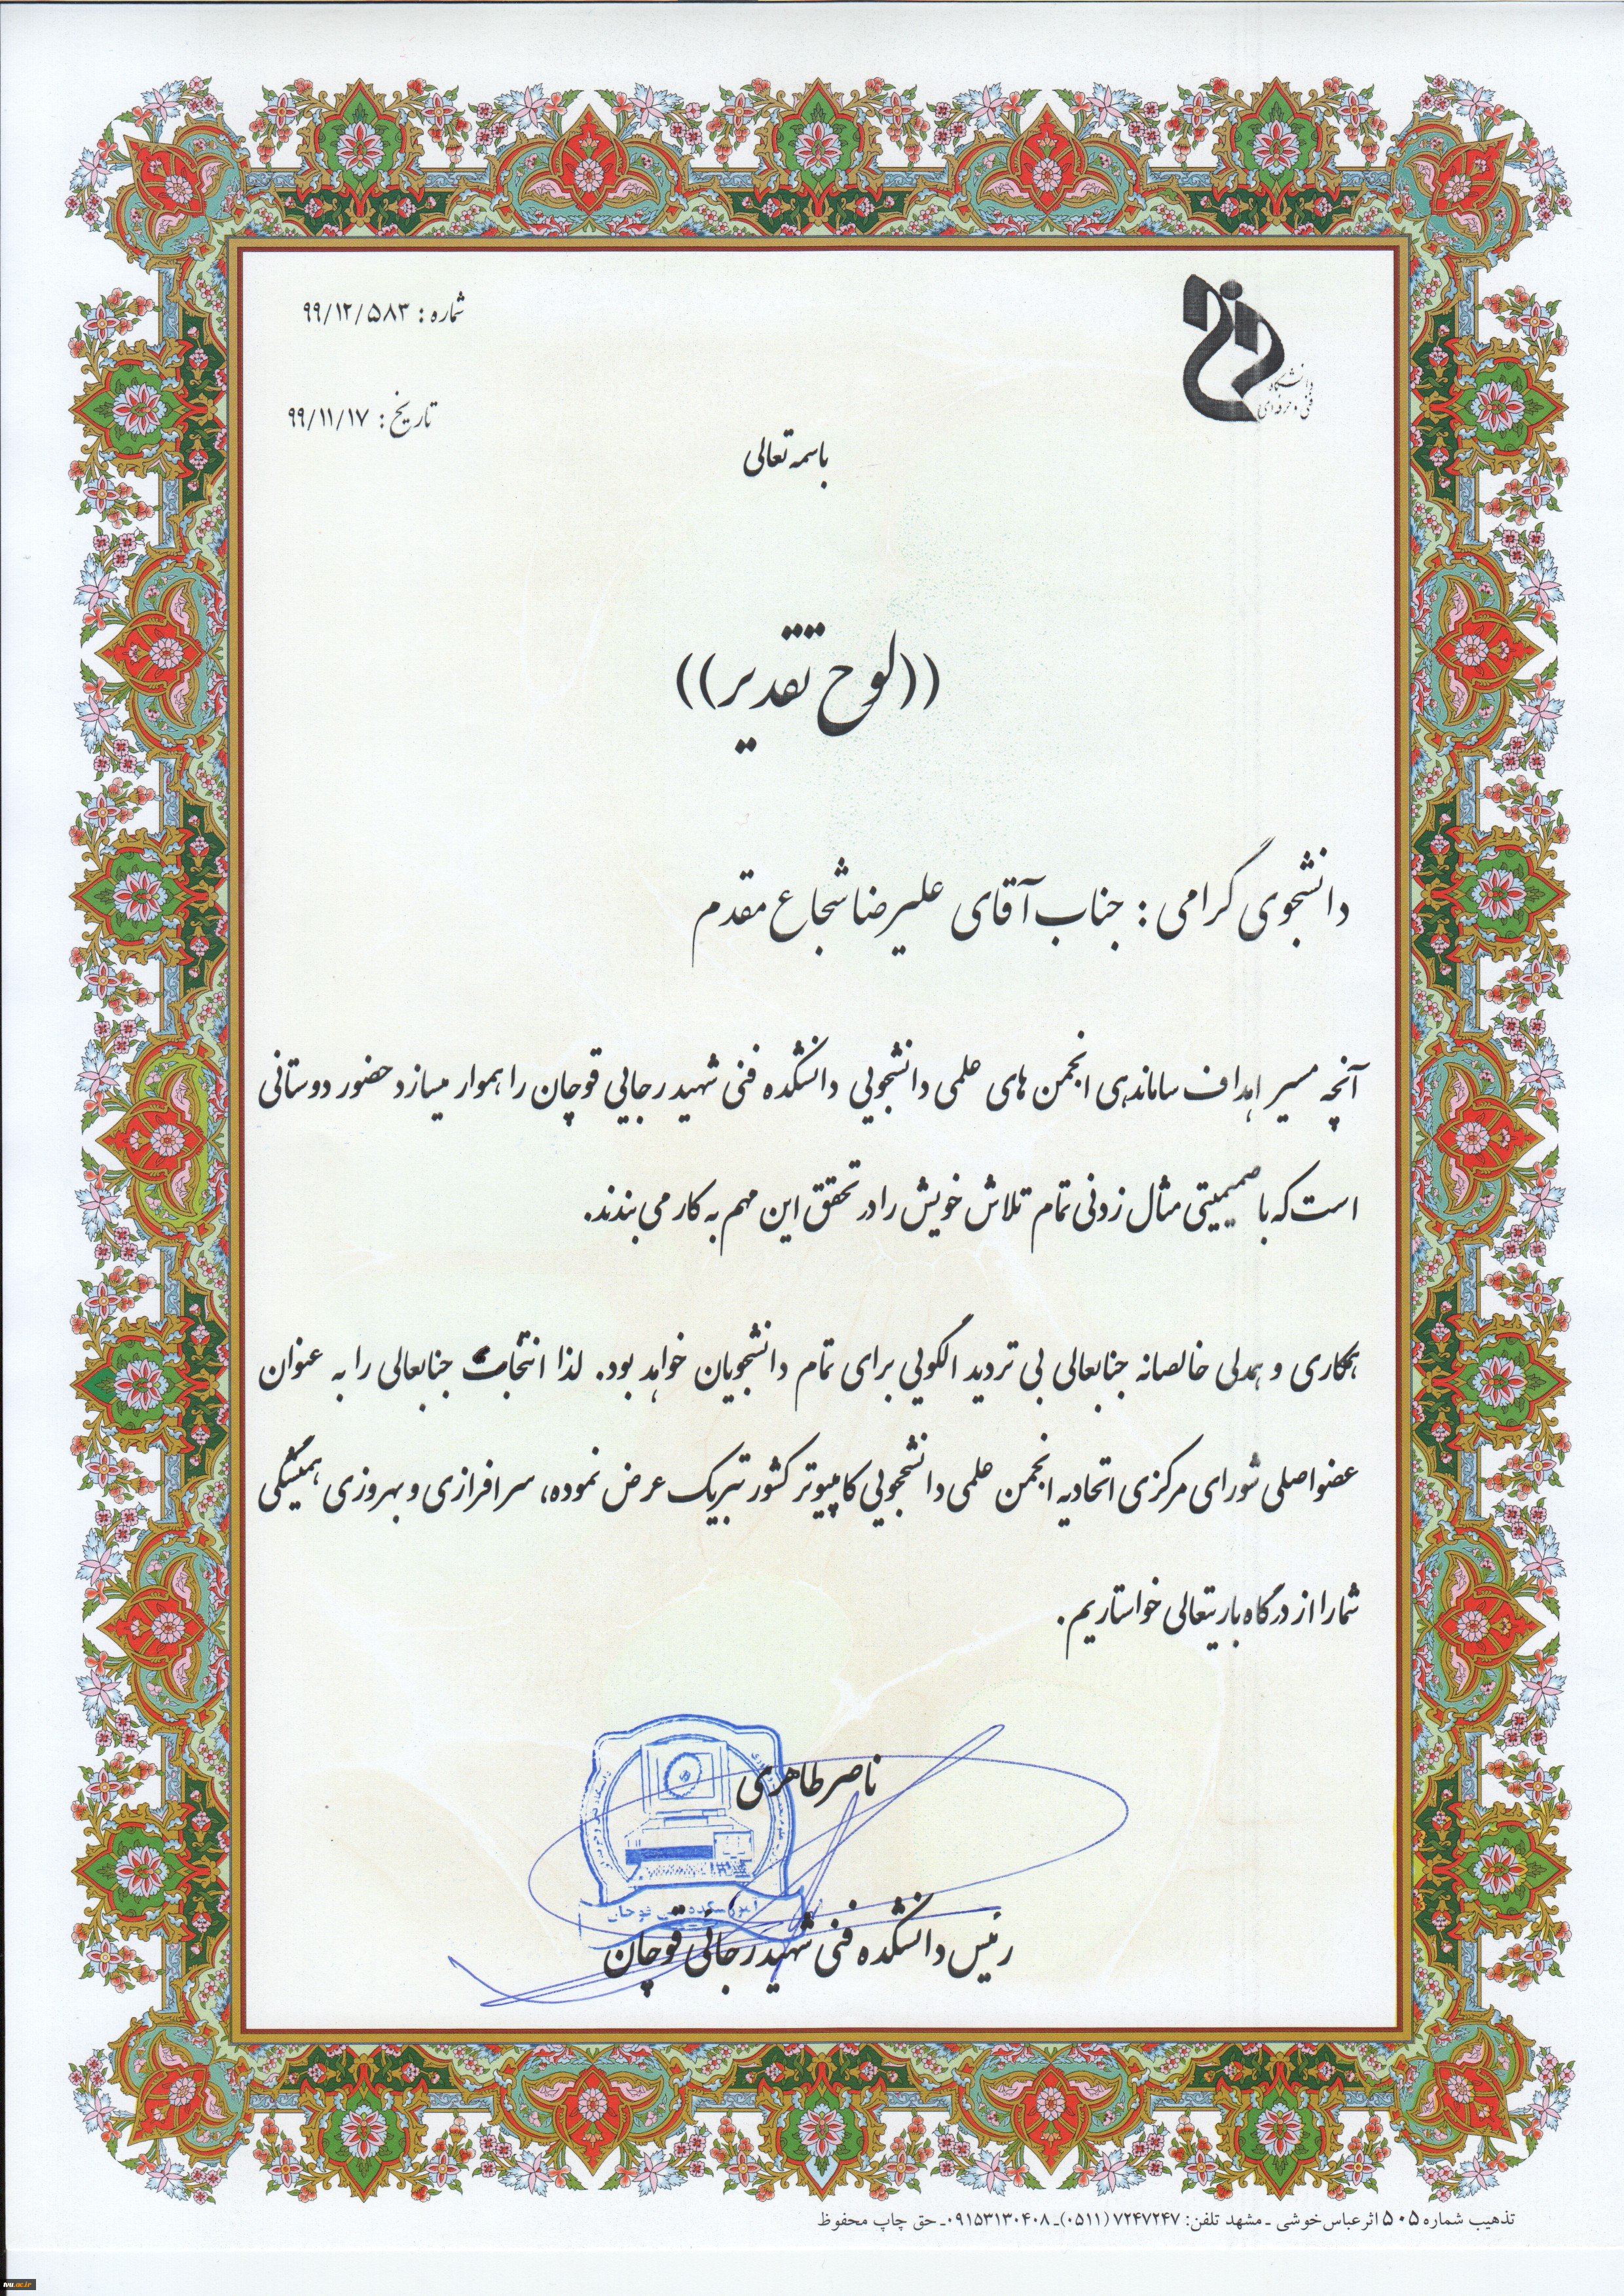 دانشگاه
فنی و حرفه ای
شماره : ۹۹/۱۲/۵۸۳
تاریخ : ۹۹/۱۱/۱۷
باسمه تعالی
((لوح تقدیر))
دانشجوی گرامی : جناب آقای علیرضا شجاع مقدم
آنچه مسیر اهداف ساماندهی انجمن های علمی دانشجویی دانشکده فنی شهید رجایی قوچان را هموار میسازد حضور دوستانی
است که با صمیمیتی مثال زدنی تمام تلاش خویش را در تحقق این مهم به کار می بندند.
همکاری و همدلی خالصانه جنابعالی بی تردید الگویی برای تمام دانشجویان خواهد بود. لذا انتخاب جنابعالی را به عنوان
عضو اصلی شورای مرکزی اتحادیه انجمن علمی دانشجویی کامپیوتر کشور تبریک عرض نموده، سرافرازی و بهروزی همیشگی
شما را از درگاه باریتعالی خواستاریم.
ناصر طاهری
رئیس دانشکده فنی شهید رجائی قوچان
تذهیب شماره ۵۰۵ اثر عباس خوشی ـ مشهد تلفن: ۷۲۴۷۲۴۷ (۰۵۱۱)ـ ۰۹۱۵۳۱۳۰۴۰۸ـ حق چاپ محفوظ
tvu.ac.ir